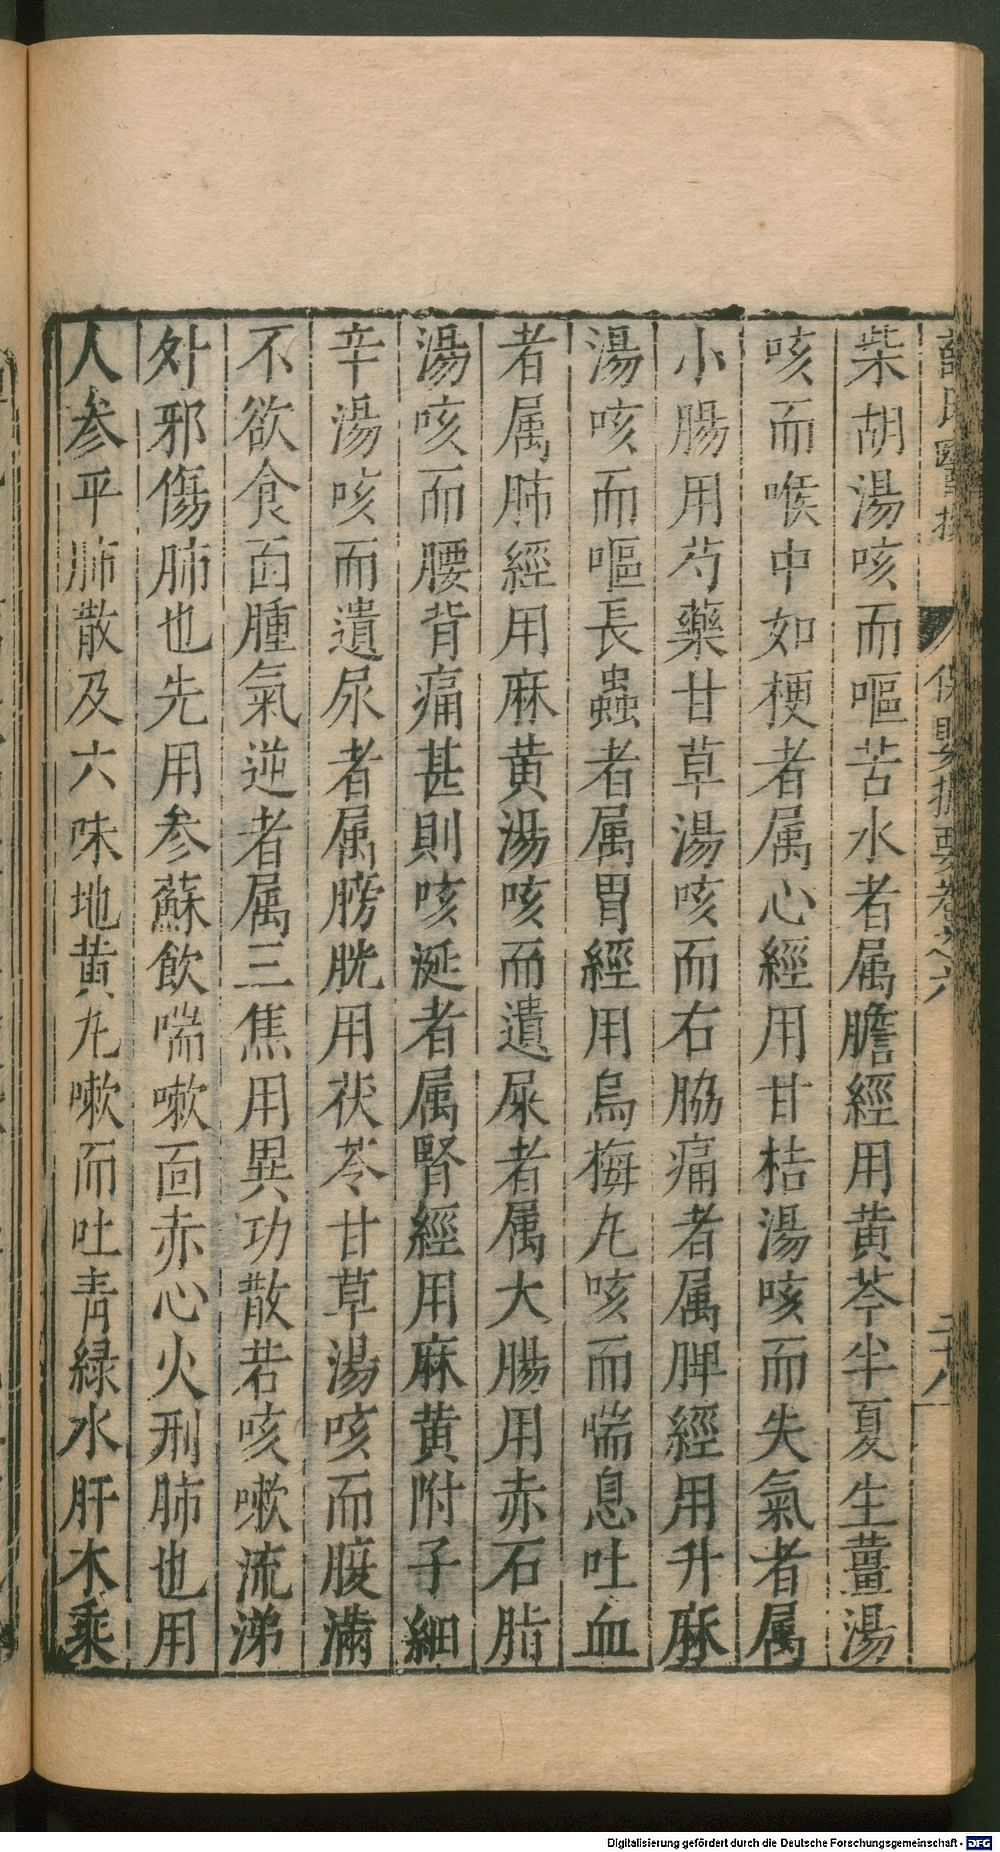 薛氏醫按 保嬰撮要卷之六 二十八
柴胡湯咳而嘔苦水者属膽經用黄芩半夏生薑湯
咳而喉中如梗者属心經用甘桔湯咳而失氣者属
小腸用芍藥甘草湯咳而右脇痛者属脾經用升麻
湯咳而嘔長蟲者属胃經用烏梅丸咳而喘息吐血
者属肺經用麻黄湯咳而遺屎者属大腸用赤石脂
湯咳而腰背痛甚則咳涎者属腎經用麻黄附子細
辛湯咳而遺尿者属膀胱用茯苓甘草湯咳而腹滿
不欲食面腫氣逆者属三焦用異功散若咳嗽流涕
外邪傷肺也先用参蘇飲喘嗽面赤心火刑肺也用
人参平肺散及六味地黄丸嗽而吐青緑水肝木乘
Digitalisierung gefördert durch die Deutsche Forschungsgemeinschaft - DFG